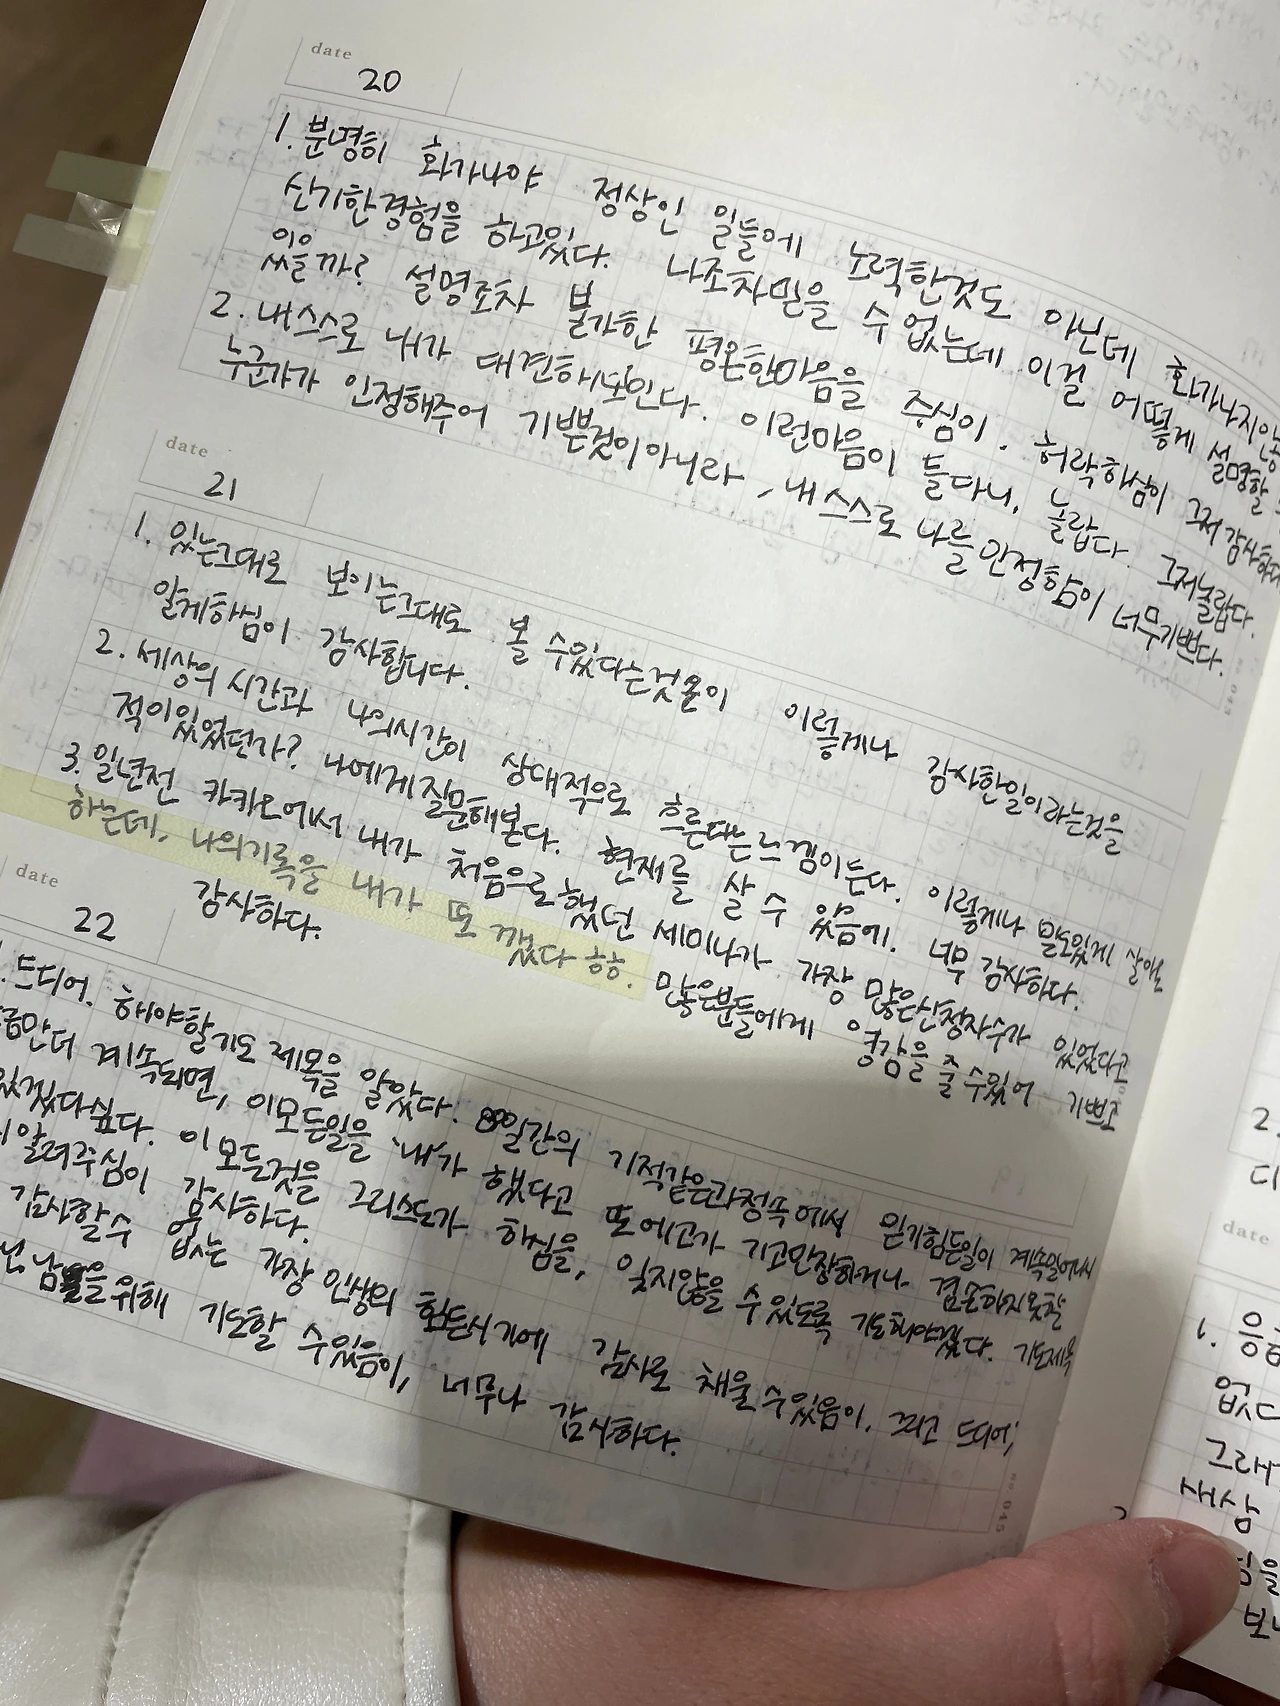 date
20
1. 분명히 화가나야 정상인 일들에 노력한것도 아닌데 화가나지않
신기한경험을 하고있다. 나조차믿을 수 없는데 이걸 어떻게 설명할
있을까? 설명조차 불가한 평온한마음을 주심이. 허락하심이 그저 감사하다
2. 내스스로 내가 대견해보인다. 이런마음이 들다니, 놀랍다. 그저놀랍다.
누군가가 인정해주어 기쁜것이아니라, 내스스로 나를 인정함이 너무기쁘다.
date
21
1. 있는그대로 보이는그대로 볼 수있다는것을이 이렇게나 감사한일이라는것을
알게하심이 감사합니다.
2. 세상의 시간과 나의시간이 상대적으로 흐른다는느낌이든다. 이렇게나 밀도있게 살아본
적이있었던가? 나에게질문해본다. 현재를 살 수 있음에. 너무 감사하다.
3. 일년전 카카오에서 내가 처음으로했던 세미나가 가장 많은신청자수가 있었다고
하는데, 나의기록을 내가 또 깼다 하하. 많은분들에게 영감을 줄 수있어 기쁘고
감사하다.
date
22
. 드디어. 해야할기도 제목을 알았다. 일간의 기적같은과정속에서 믿기힘든일이 계속일어나서
만더 계속되면, 이모든일을 '내'가 했다고 또 에고가 기고만장하거나 겸손하지못할
있겠다싶다. 이모든것을 그리스도가 하심을, 잊지않을 수있도록 기도해야겠다. 기도제목
알려주심이 감사하다.
감사할수 없는 가장 인생의 힘든시기에 감사로 채울수있음이. 그리고 드디어,
남들을위해 기도할 수있음이, 너무나 감사하다.
no. 045
2.
디
date
1. 응
없다
그래
새삼